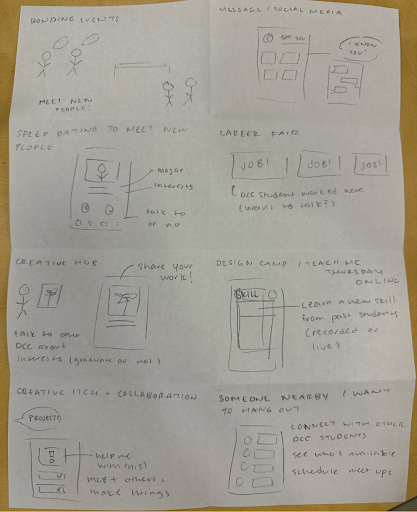 BONDING EVENTS
MEET NEW
PEOPLE!
MESSAGE / SOCIAL MEDIA
I KNOW
YOU!
SPEED DATING TO MEET NEW
PEOPLE
major
interests
talk to
or no
CAREER FAIR
JOB! JOB! JOB!
DCC student worked here
(want to talk?)
CREATIVE HUB
share your
work!
talk to other
DCC about
interests (graduate or not)
DESIGN CAMP / TEACH ME
THURSDAY
ONLINE
SKILL
Learn a new skill
from past students
(recorded or
live)
CREATIVE ITCH + COLLABORATION
PROJECT!
help me
w/ this!
meet others +
make things
SOMEONE NEARBY / WANT
TO HANG OUT
CONNECT WITH OTHER
DCC STUDENTS
see who's available
schedule meet ups